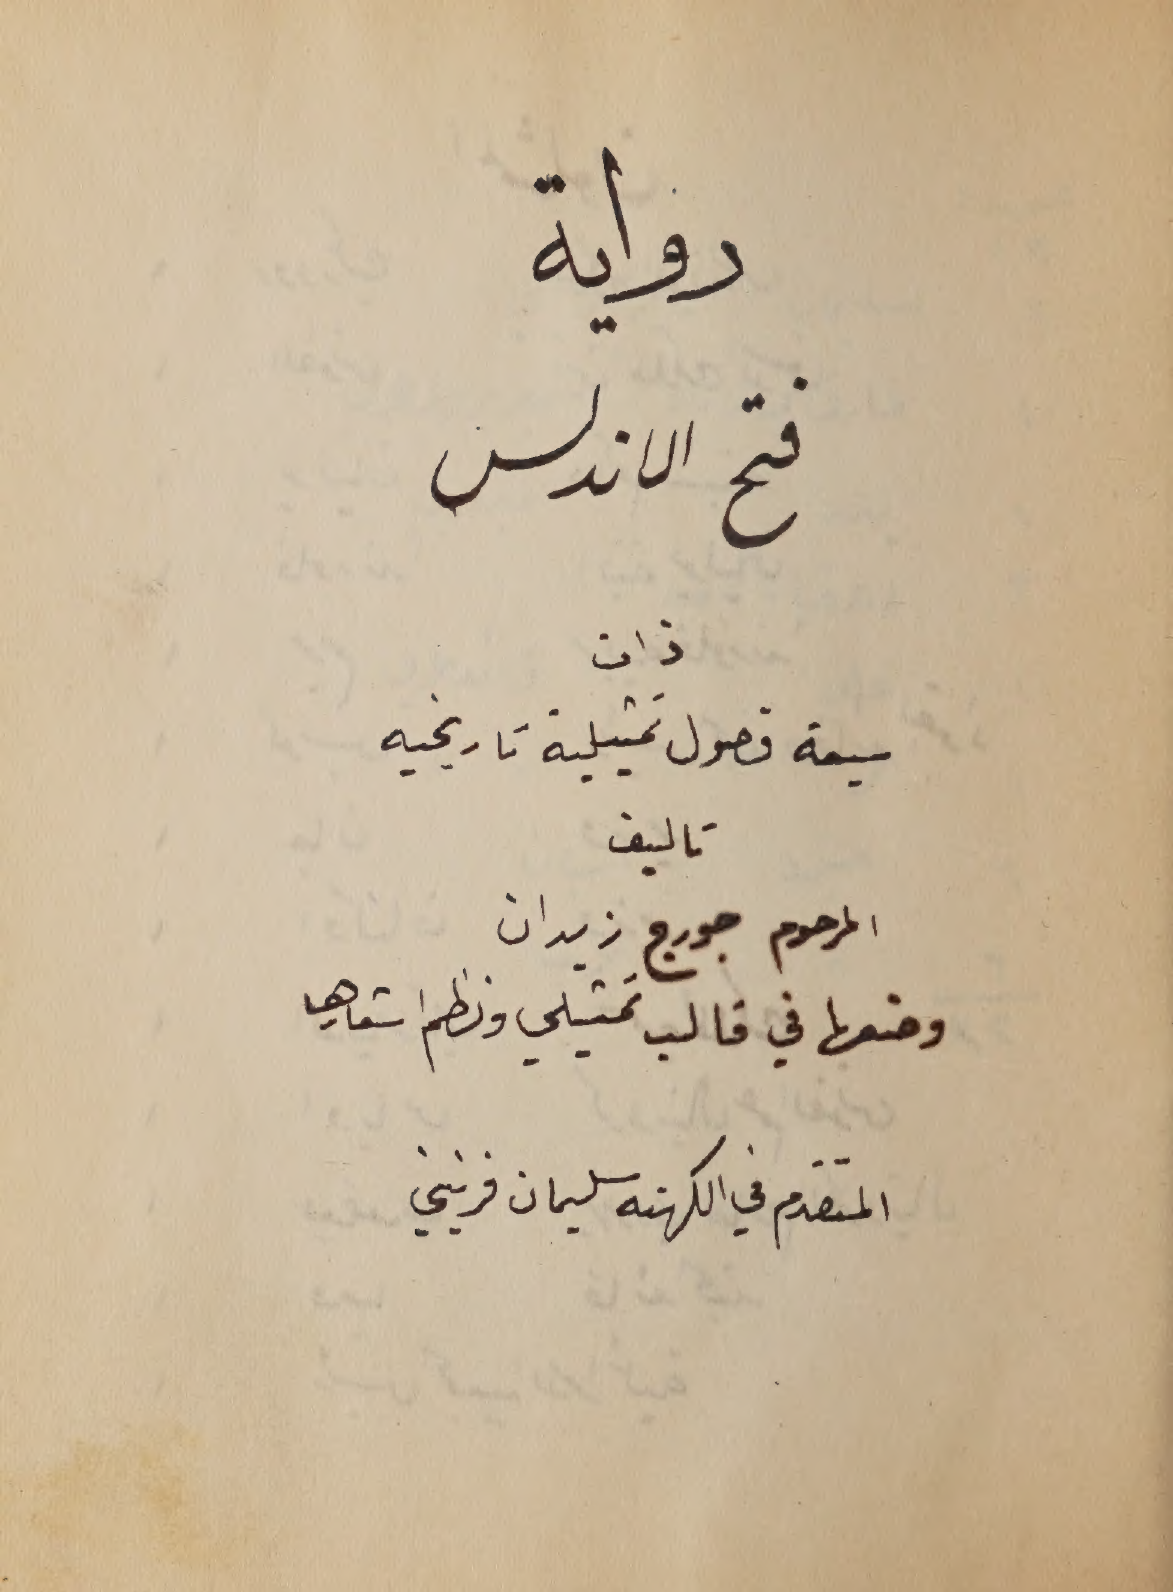 رواية
فتح الاندلس
ذات
سبعة فصول تمثيلية تاريخيه
تاليف
المرحوم جورج زيدان
وضعها في قالب تمثيلي ونظم اشعارها
المتقدم في الكهنه سليمان فرينيني